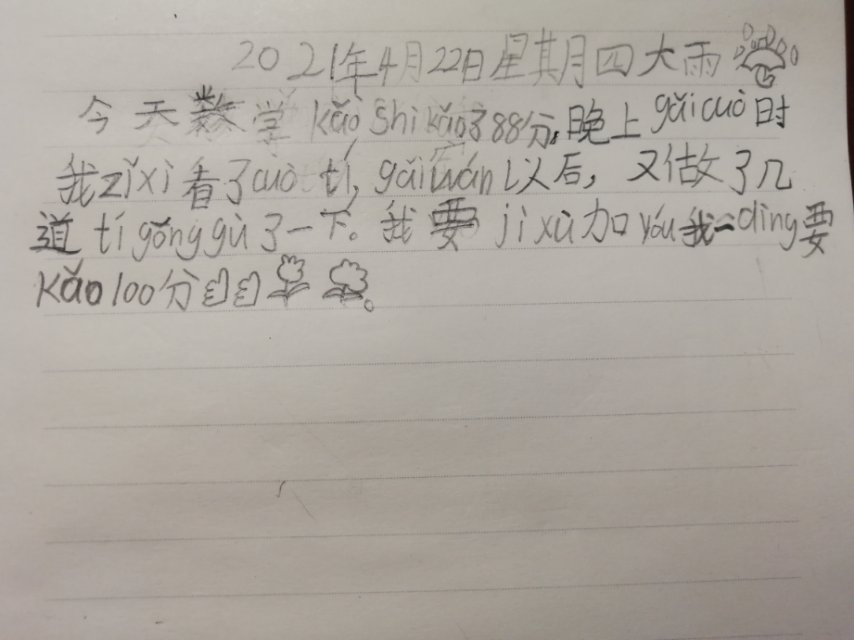 2021年4月22日星期四大雨
今天数学kǎoshì kǎo了88分,晚上gǎicuò时
我zǐxì看了cuò tí, gǎiwán以后，又做了几
道tí gǒng gù了一下。我要jì xù加yóu我一dìng要
kǎo100分。